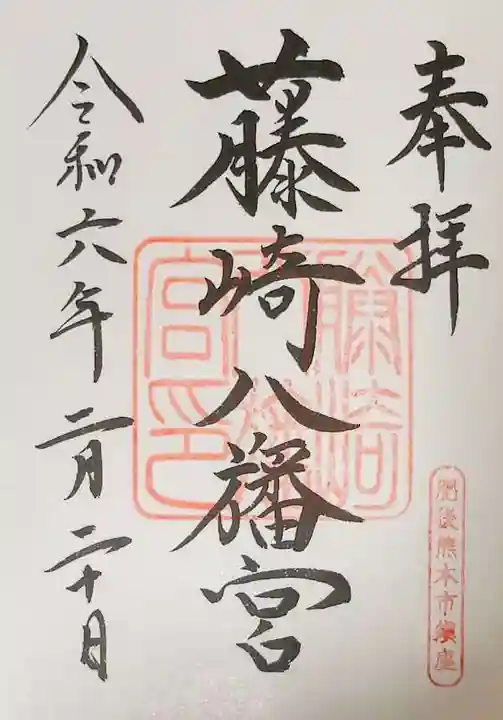 奉拝
肥後熊本市鎮座
藤崎八旛宮
藤崎八旛宮印
令和六年二月二十日